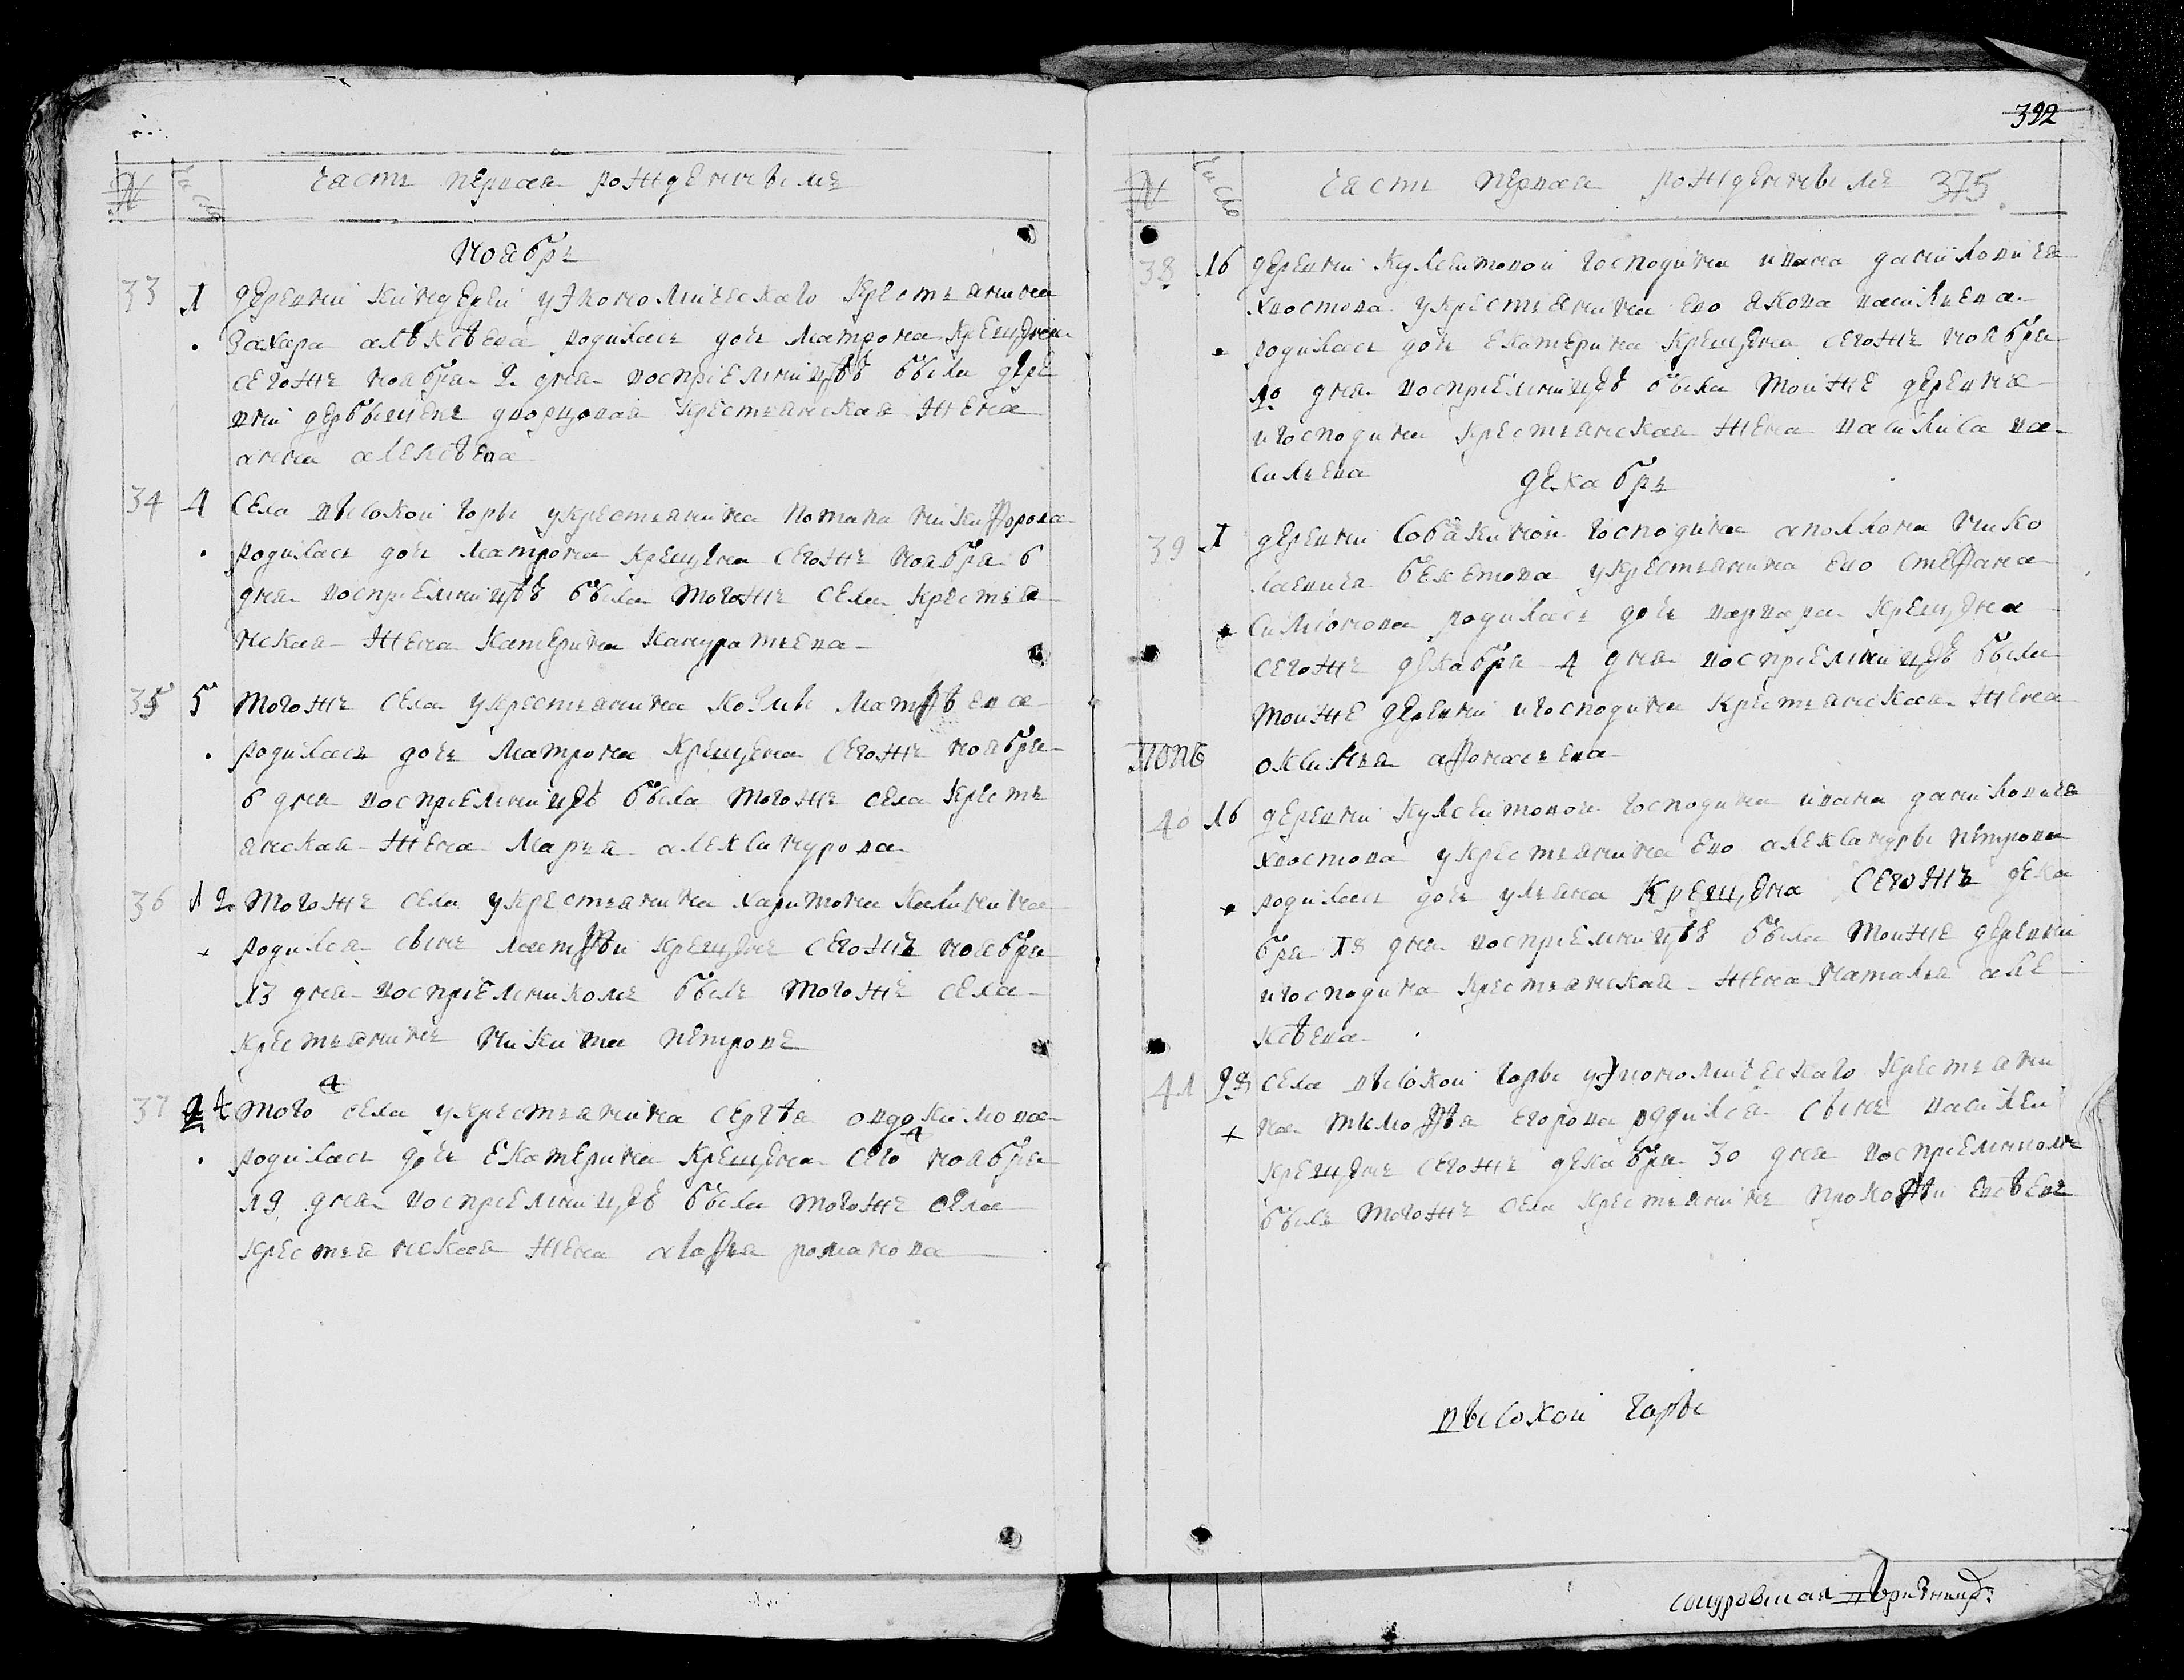 N число часть первая рожденнымъ
ноябрь
33 1 деревни киндерей уэкономическаго крестьянина
захара алѣксѣева родилась дочь матрона крещена
сегожъ ноября 2 дня воспрiемницѣю была дере
вни дербышекъ дворцовая крестьянская жена
анна алексѣева
34 4 села высокой горы украстьянина потапа никифорова
родилась дочь матрона крещена сегожъ ноября 6
дня воспрiемницѣю была тогожъ села крестья
нская жена катерина канъратьева
35 5 тогожъ села укрестьянина козмы матфѣева
родилась дочь матрона крещена сегожъ ноября
6 дня воспрiемницею была тогожъ села кресть
янская жена марья александрова
36 12 тогожъ села укрестьянина харитона калинина
родился сынъ матфѣй крещенъ сегожъ ноября
13 дня воспрiемникомъ былъ тогожъ села
крестьянинъ никита петровъ
37 того села укрестьянина сергѣя овдокимова
родилась дочь екатерина крещена сего ноября
19 дня воспрiемницею была тогожъ села
крестьянская жена агафья романова
392
N число часть первая рожденнымъ 375
38 16 деревни кулсеитовой господина ивана даниловича
хвостова укрестьянина ево якова васильева
родилась дочь екатерина крещена сегожъ ноября
18 дня воспрiемницею была тойже деревни
игосподина крестьянская жена василиса ва
сильева
декабрь
39 1 деревни собакиной господина аполлона нико
лаевича бекетова укрестьянина ево стефана
симiонова родилась дочь варвара крещена
сегожъ декабря 4 дня воспрiемницею была
тойже деревни игосподина крестьянская жена
оксинья афонасьева
40 16 деревни кулсеитовой господина ивана даниловича
хвостова укрестьянина ево александры петрова
родилась дочь ульяна крещена сегожъ дека
бря 18 дня воспрiемницею была тойже деревни
игосподина крестьянская жена наталья але
ксѣева
41 28 села высокой горы уэкономическаго крестьяни
на тимофѣя егорова родился сынъ василей
крещенъ сегожъ декабря 30 дня воспрiемникомъ
былъ тогожъ села крестьянинъ прокофѣй евсѣевъ
высокой горы